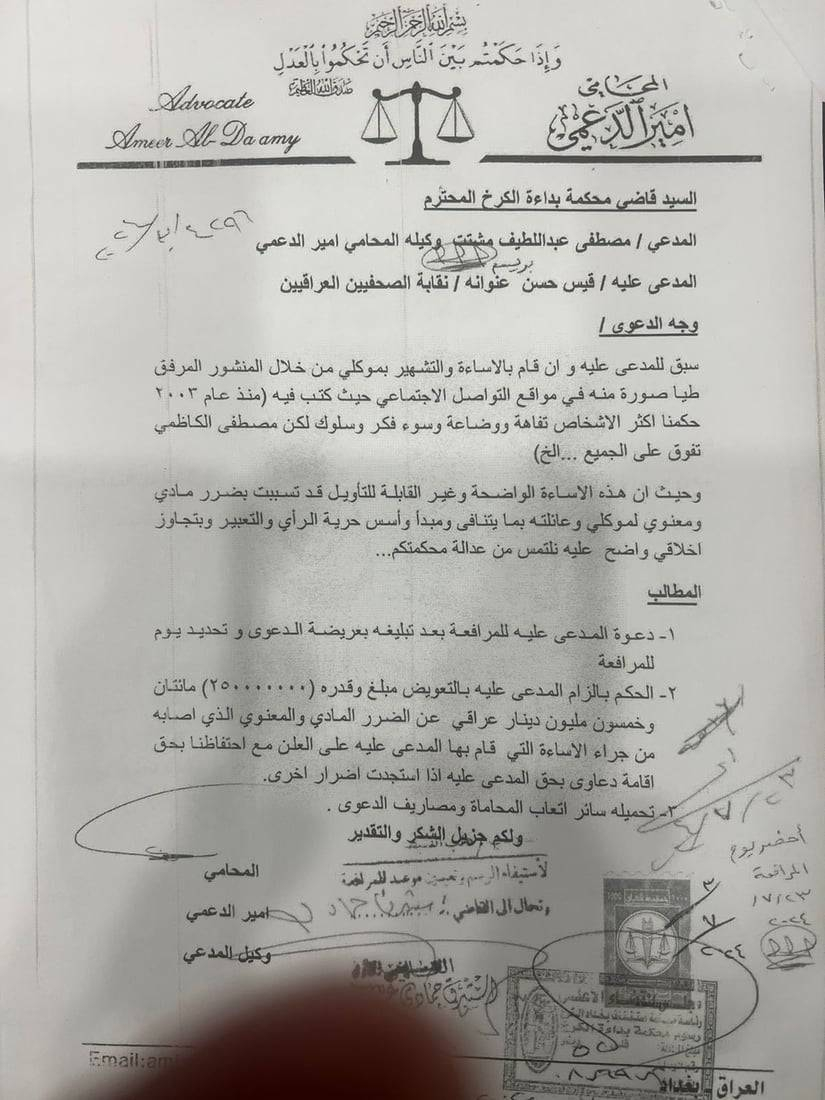 بسم الله الرحمن الرحيم
وَإِذَا حَكَمْتُم بَيْنَ النَّاسِ أَن تَحْكُمُوا بِالْعَدْلِ
صدق الله العظيم
المحامي
امير الدعمي
Advocate
Ameer Al-Da amy
السيد قاضي محكمة بداءة الكرخ المحترم
المدعي / مصطفى عبداللطيف مشتت وكيله المحامي امير الدعمي
المدعى عليه / قيس حسن عنوانه / نقابة الصحفيين العراقيين
وجه الدعوى /
سبق للمدعى عليه و ان قام بالاساءة والتشهير بموكلي من خلال المنشور المرفق
طيا صورة منه في مواقع التواصل الاجتماعي حيث كتب فيه (منذ عام ٢٠٠٣
حكمنا اكثر الاشخاص تفاهة ووضاعة وسوء فكر وسلوك لكن مصطفى الكاظمي
تفوق على الجميع ...الخ)
وحيث ان هذه الاساءة الواضحة وغير القابلة للتأويل قد تسببت بضرر مادي
ومعنوي لموكلي وعائلته بما يتنافى ومبدأ وأسس حرية الرأي والتعبير وبتجاوز
اخلاقي واضح عليه نلتمس من عدالة محكمتكم...
المطالب
١- دعوة المدعى عليه للمرافعة بعد تبليغه بعريضة الدعوى و تحديد يوم
للمرافعة
٢- الحكم بالزام المدعى عليه بالتعويض مبلغ وقدره (٢٥٠٠٠٠٠٠٠) مائتان
وخمسون مليون دينار عراقي عن الضرر المادي والمعنوي الذي اصابه
من جراء الاساءة التي قام بها المدعى عليه على العلن مع احتفاظنا بحق
اقامة دعاوى بحق المدعى عليه اذا استجدت اضرار اخرى.
٣- تحميله سائر اتعاب المحاماة ومصاريف الدعوى .
ولكم جزيل الشكر والتقدير
لأستيفاء الرسم وتعيين موعد للمرافعة
وتحال الى القاضي :
المحامي
امير الدعمي
وكيل المدعي
أحضر يوم
المرافعة
٧/٢٣/
٢٠٢٤
٣
٧
٢٠٢٤
العراق - بغداد
Email:am